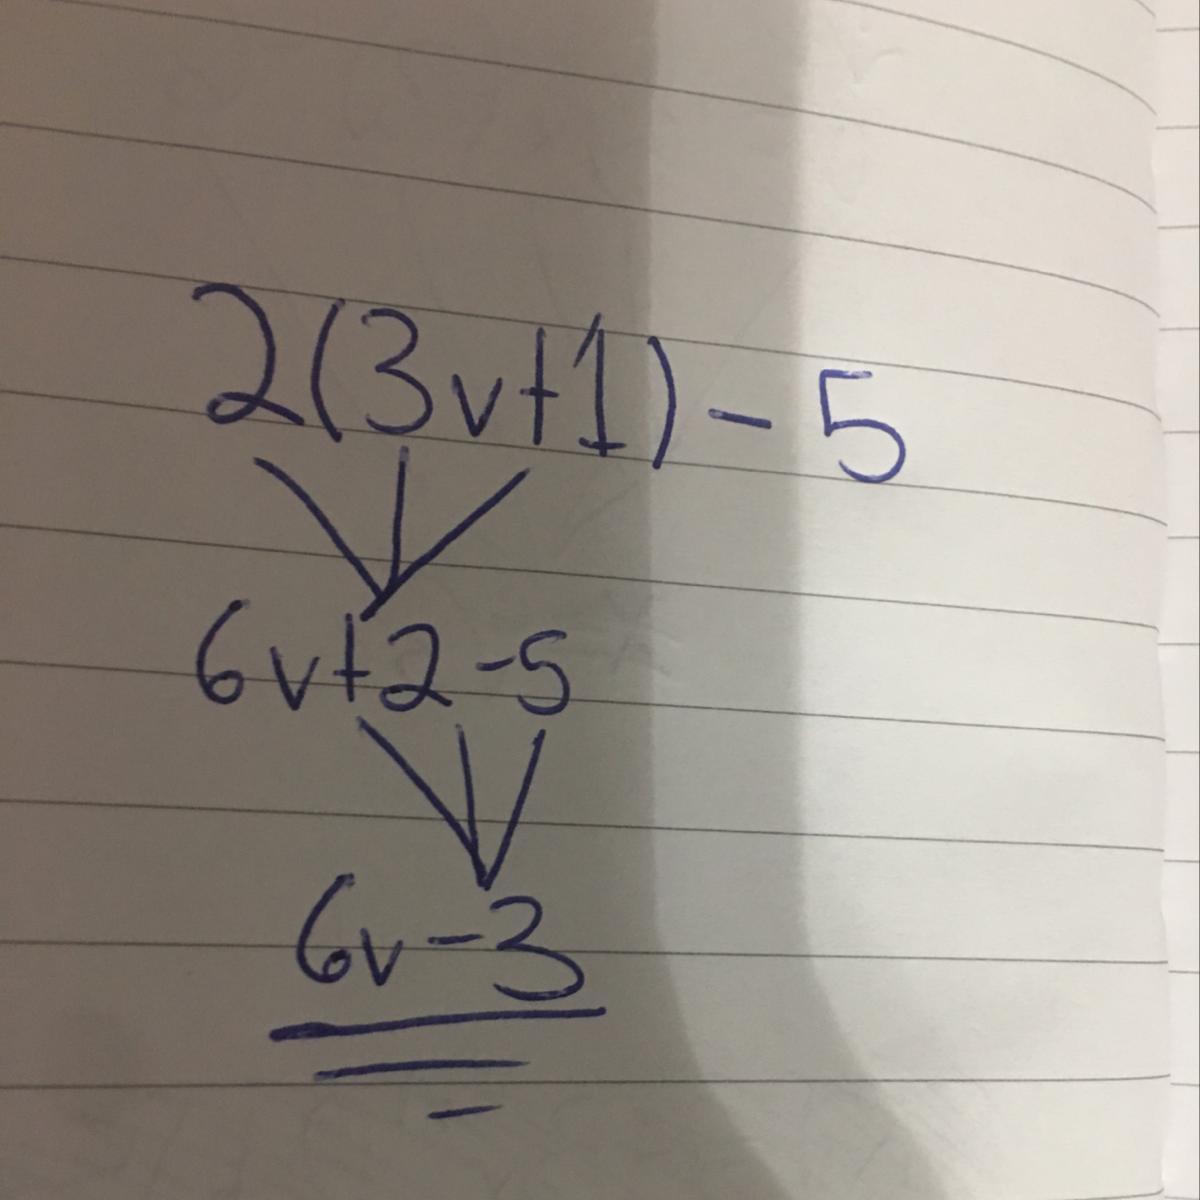 2(3v+1)-5
6v+2-5
6v-3